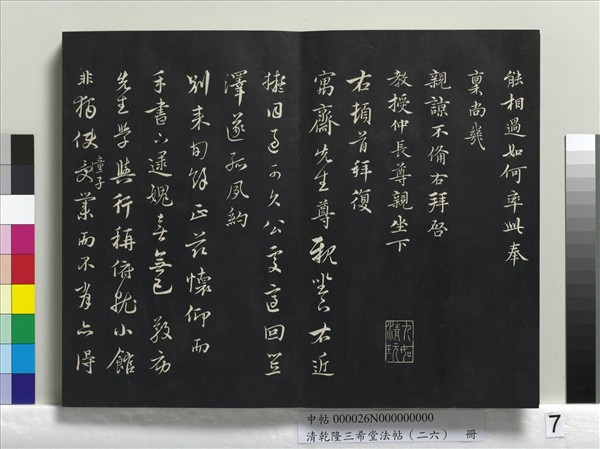 能相過如何率此奉
稟尚幾
親諒不備右拜啓
教授仲長尊親坐下
右頓首拜復
寓齋先生尊親坐下右近
拙回 可久公處 回並
澤遂孤夙約
別來旬餘正茲懷仰而
手書下逮媿喜無已 教病
先生學與行稱俯就小館
非獨使童子受業而不肖亦得
中帖 000026N000000000
清乾隆三希堂法帖（二六） 冊
7